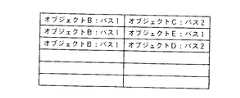 オブジェクトB：パス1 オブジェクトC：パス2
オブジェクトB：パス1 オブジェクトE：パス1
オブジェクトB：パス1 オブジェクトD：パス2